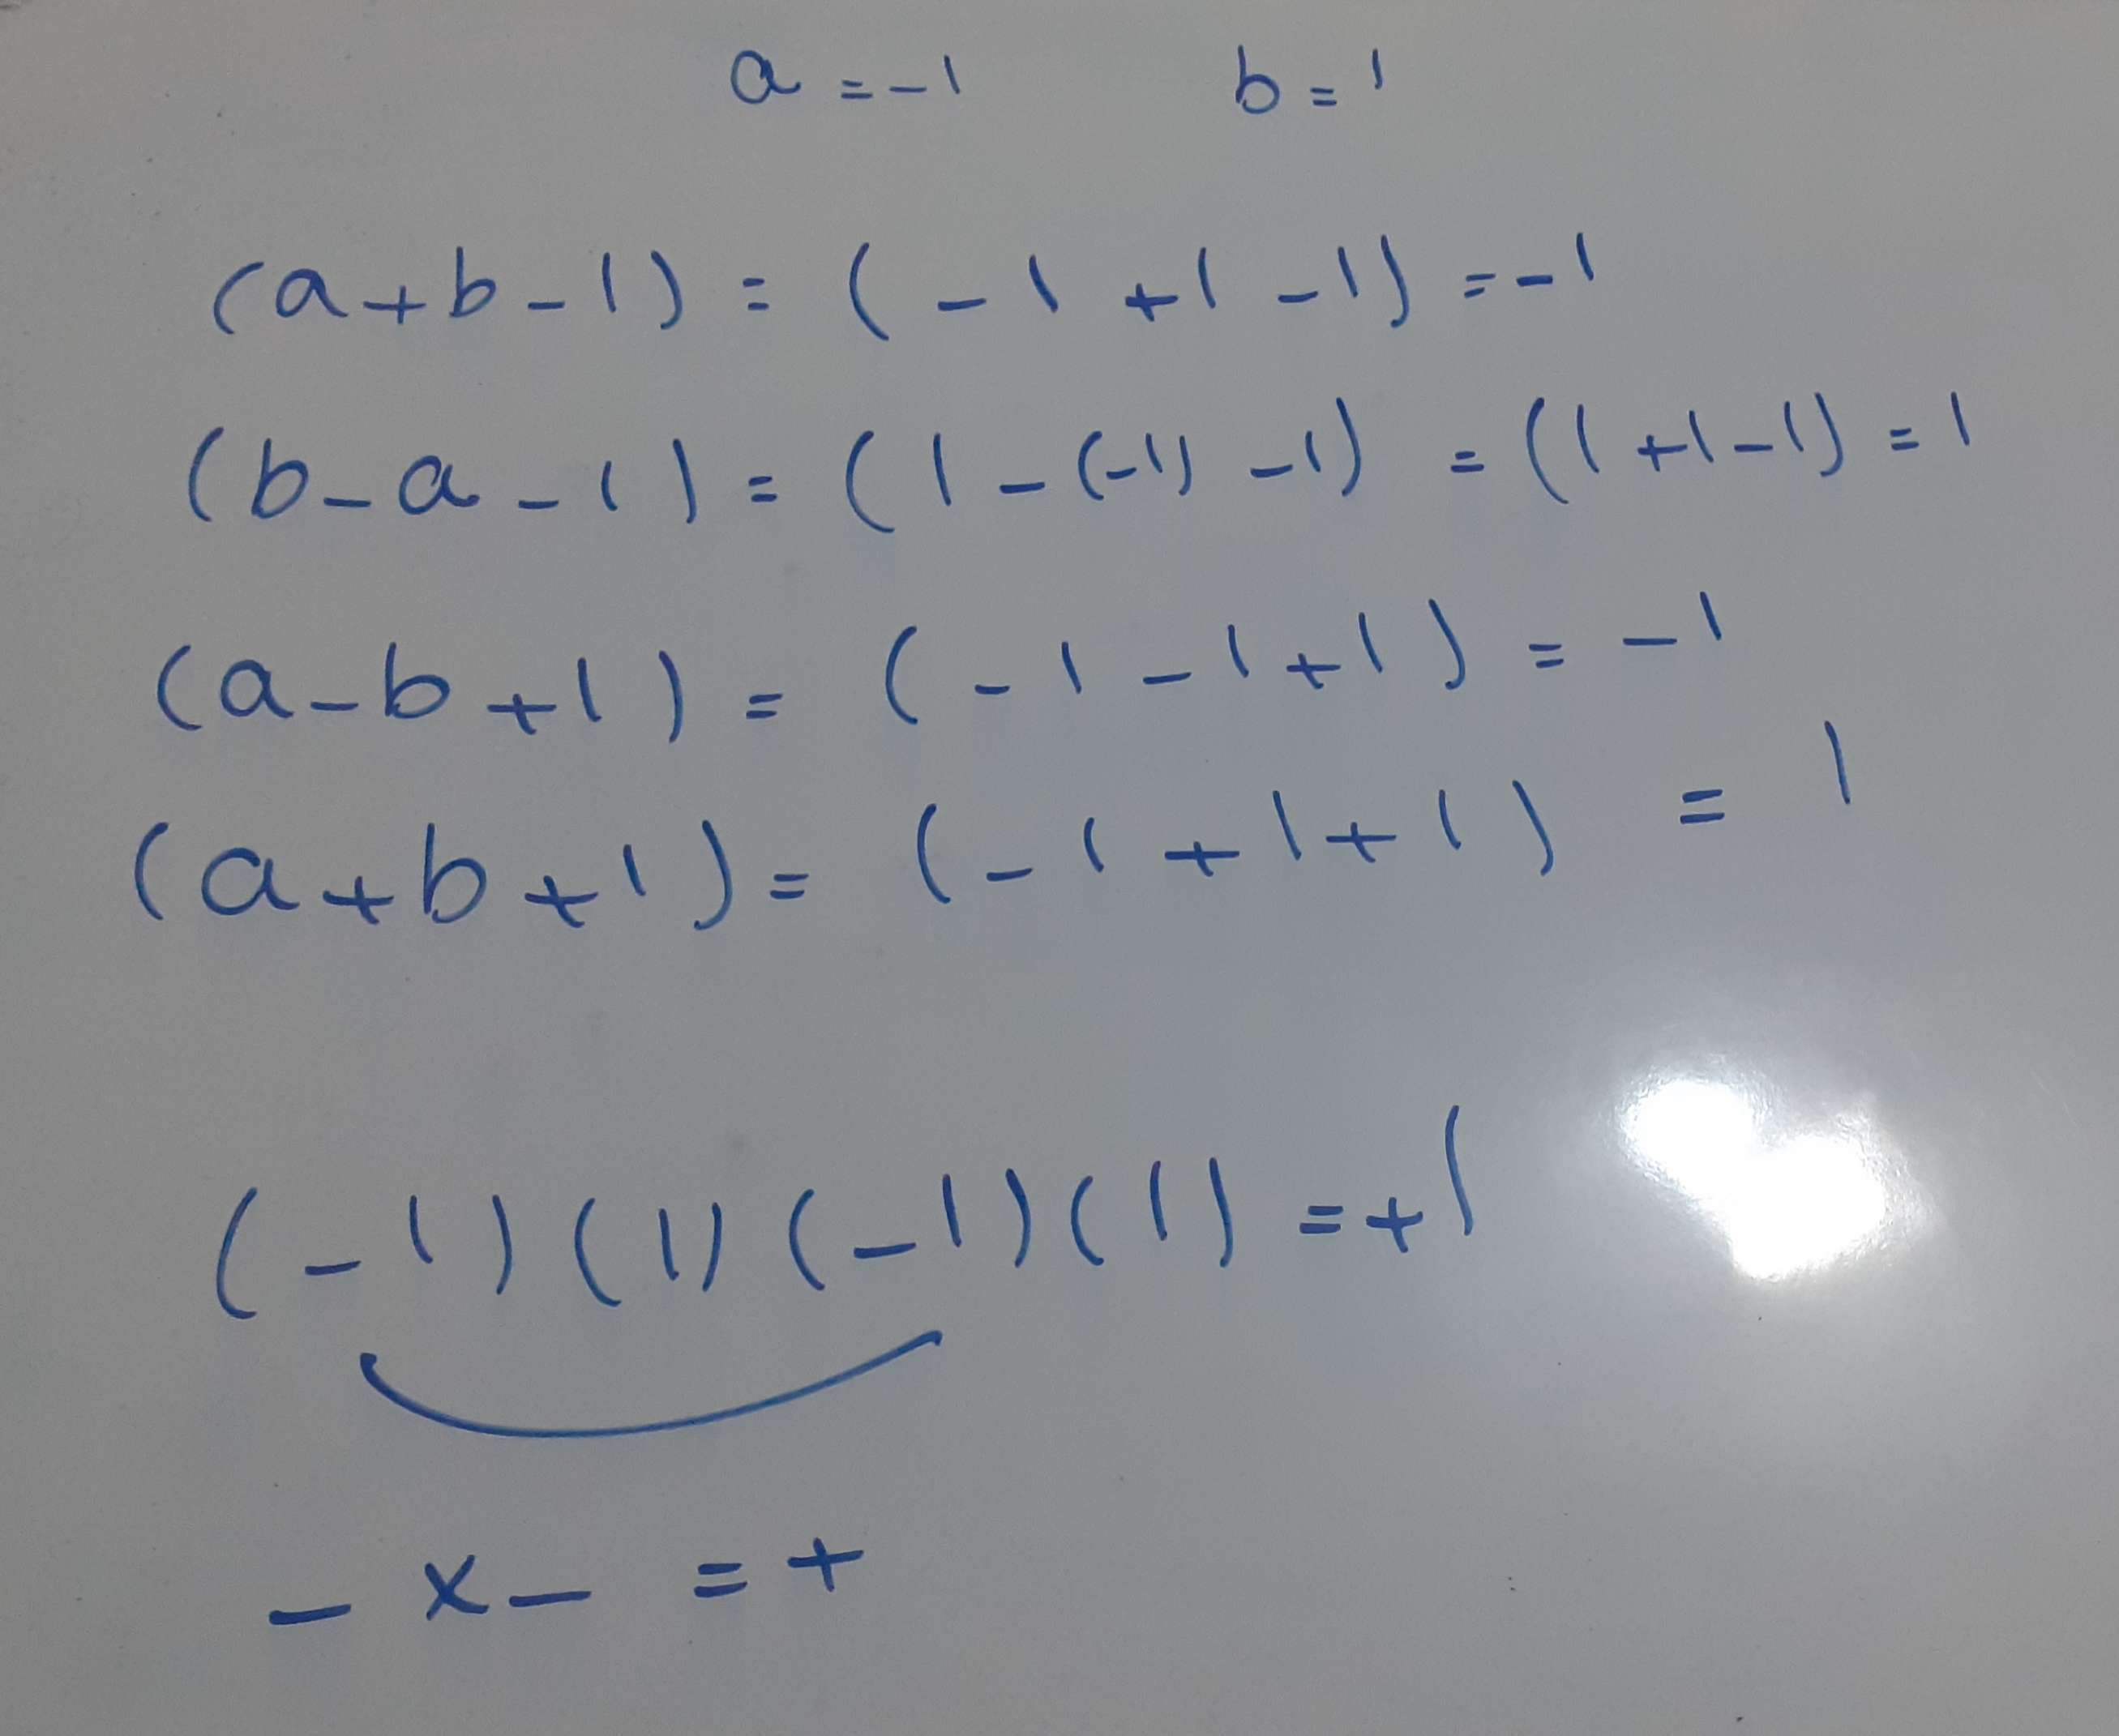 a = -1 b = 1
(a+b-1) = (-1 +1 -1) = -1
(b-a-1) = (1-(-1)-1) = (1+1-1) = 1
(a-b+1) = (-1-1+1) = -1
(a+b+1) = (-1+1+1) = 1
(-1)(1)(-1)(1) = +1
- x - = +